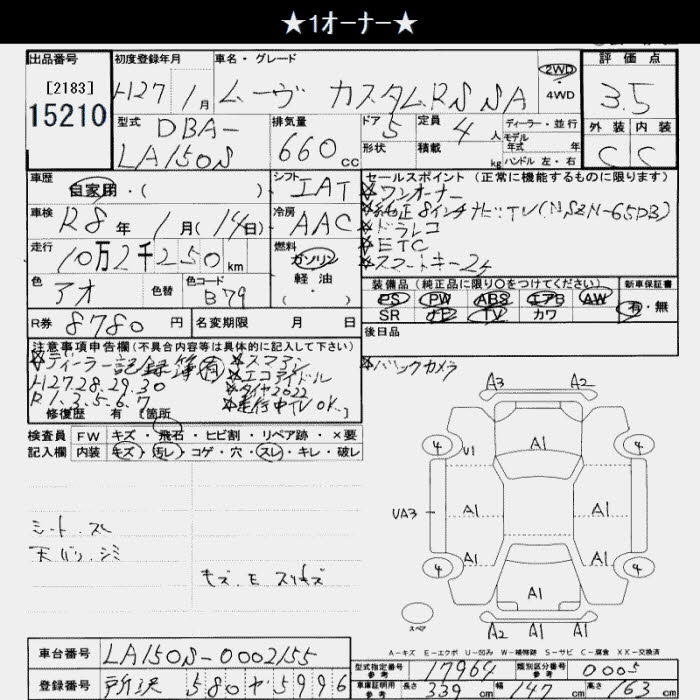 ★1オーナー★
出品番号 初度登録年月 車名・グレード 評価点
[2183] H27 1月 ムーヴ カスタムRS SA 2WD 3.5
15210 4WD
型式 DBA- 排気量 ドア 5 定員 4人 ディーラー・並行 外装 内装
LA150S 660cc 形状 積載 kg モデル年式 年 C C
ハンドル 左・右
車歴 シフト セールスポイント (正常に機能するものに限ります)
自家用・( ) IAT ☆ワンオーナー
車検 冷房 ☆純正8インチナビTV(NSZN-65DB)
R8年1月(14日) AAC ☆ドラレコ
走行 燃料 ☆ETC
10万2千250km ガソリン ☆スマートキー2ケ
色 色替 色コード 軽油 装備品 (純正品に限り○をつけてください) 新車保証書
アオ B79 ( ) PS PW ABS エアB AW 有・無
SR ナビ TV カワ
R券 8780円 名変期限 月 日 後日品
注意事項申告欄(不具合内容等は具体的に記入して下さい) ☆バックカメラ
☆ディーラー記録簿(有) ☆スマアシ
H27.28.29.30 ☆エコアイドル
R1.3.5.6.7 ☆タイヤ2022
修復歴 有 [箇所 ☆走行中TV OK. ]
検査員 FW キズ・飛石・ヒビ割・リペア跡・×要
記入欄 内装 キズ・汚レ・コゲ・穴・スレ・キレ・破レ
シート.スレ
天バリ.シミ
キズ.E スリキズ
A3 A2
4 U1 A1 4
UA3 A1 A1
A1 A1
4 A1 4
スペア A2 A1 A1
A-キズ E-エクボ U-凹み W-補修跡 S-サビ C-腐食 XX-交換済
車台番号 LA150S-0002155
型式指定番号 参考 17964 類別区分番号 参考 0005
登録番号 所沢 580 か 5996
車庫証明用 参考 長さ 339cm 幅 147cm 高さ 163cm